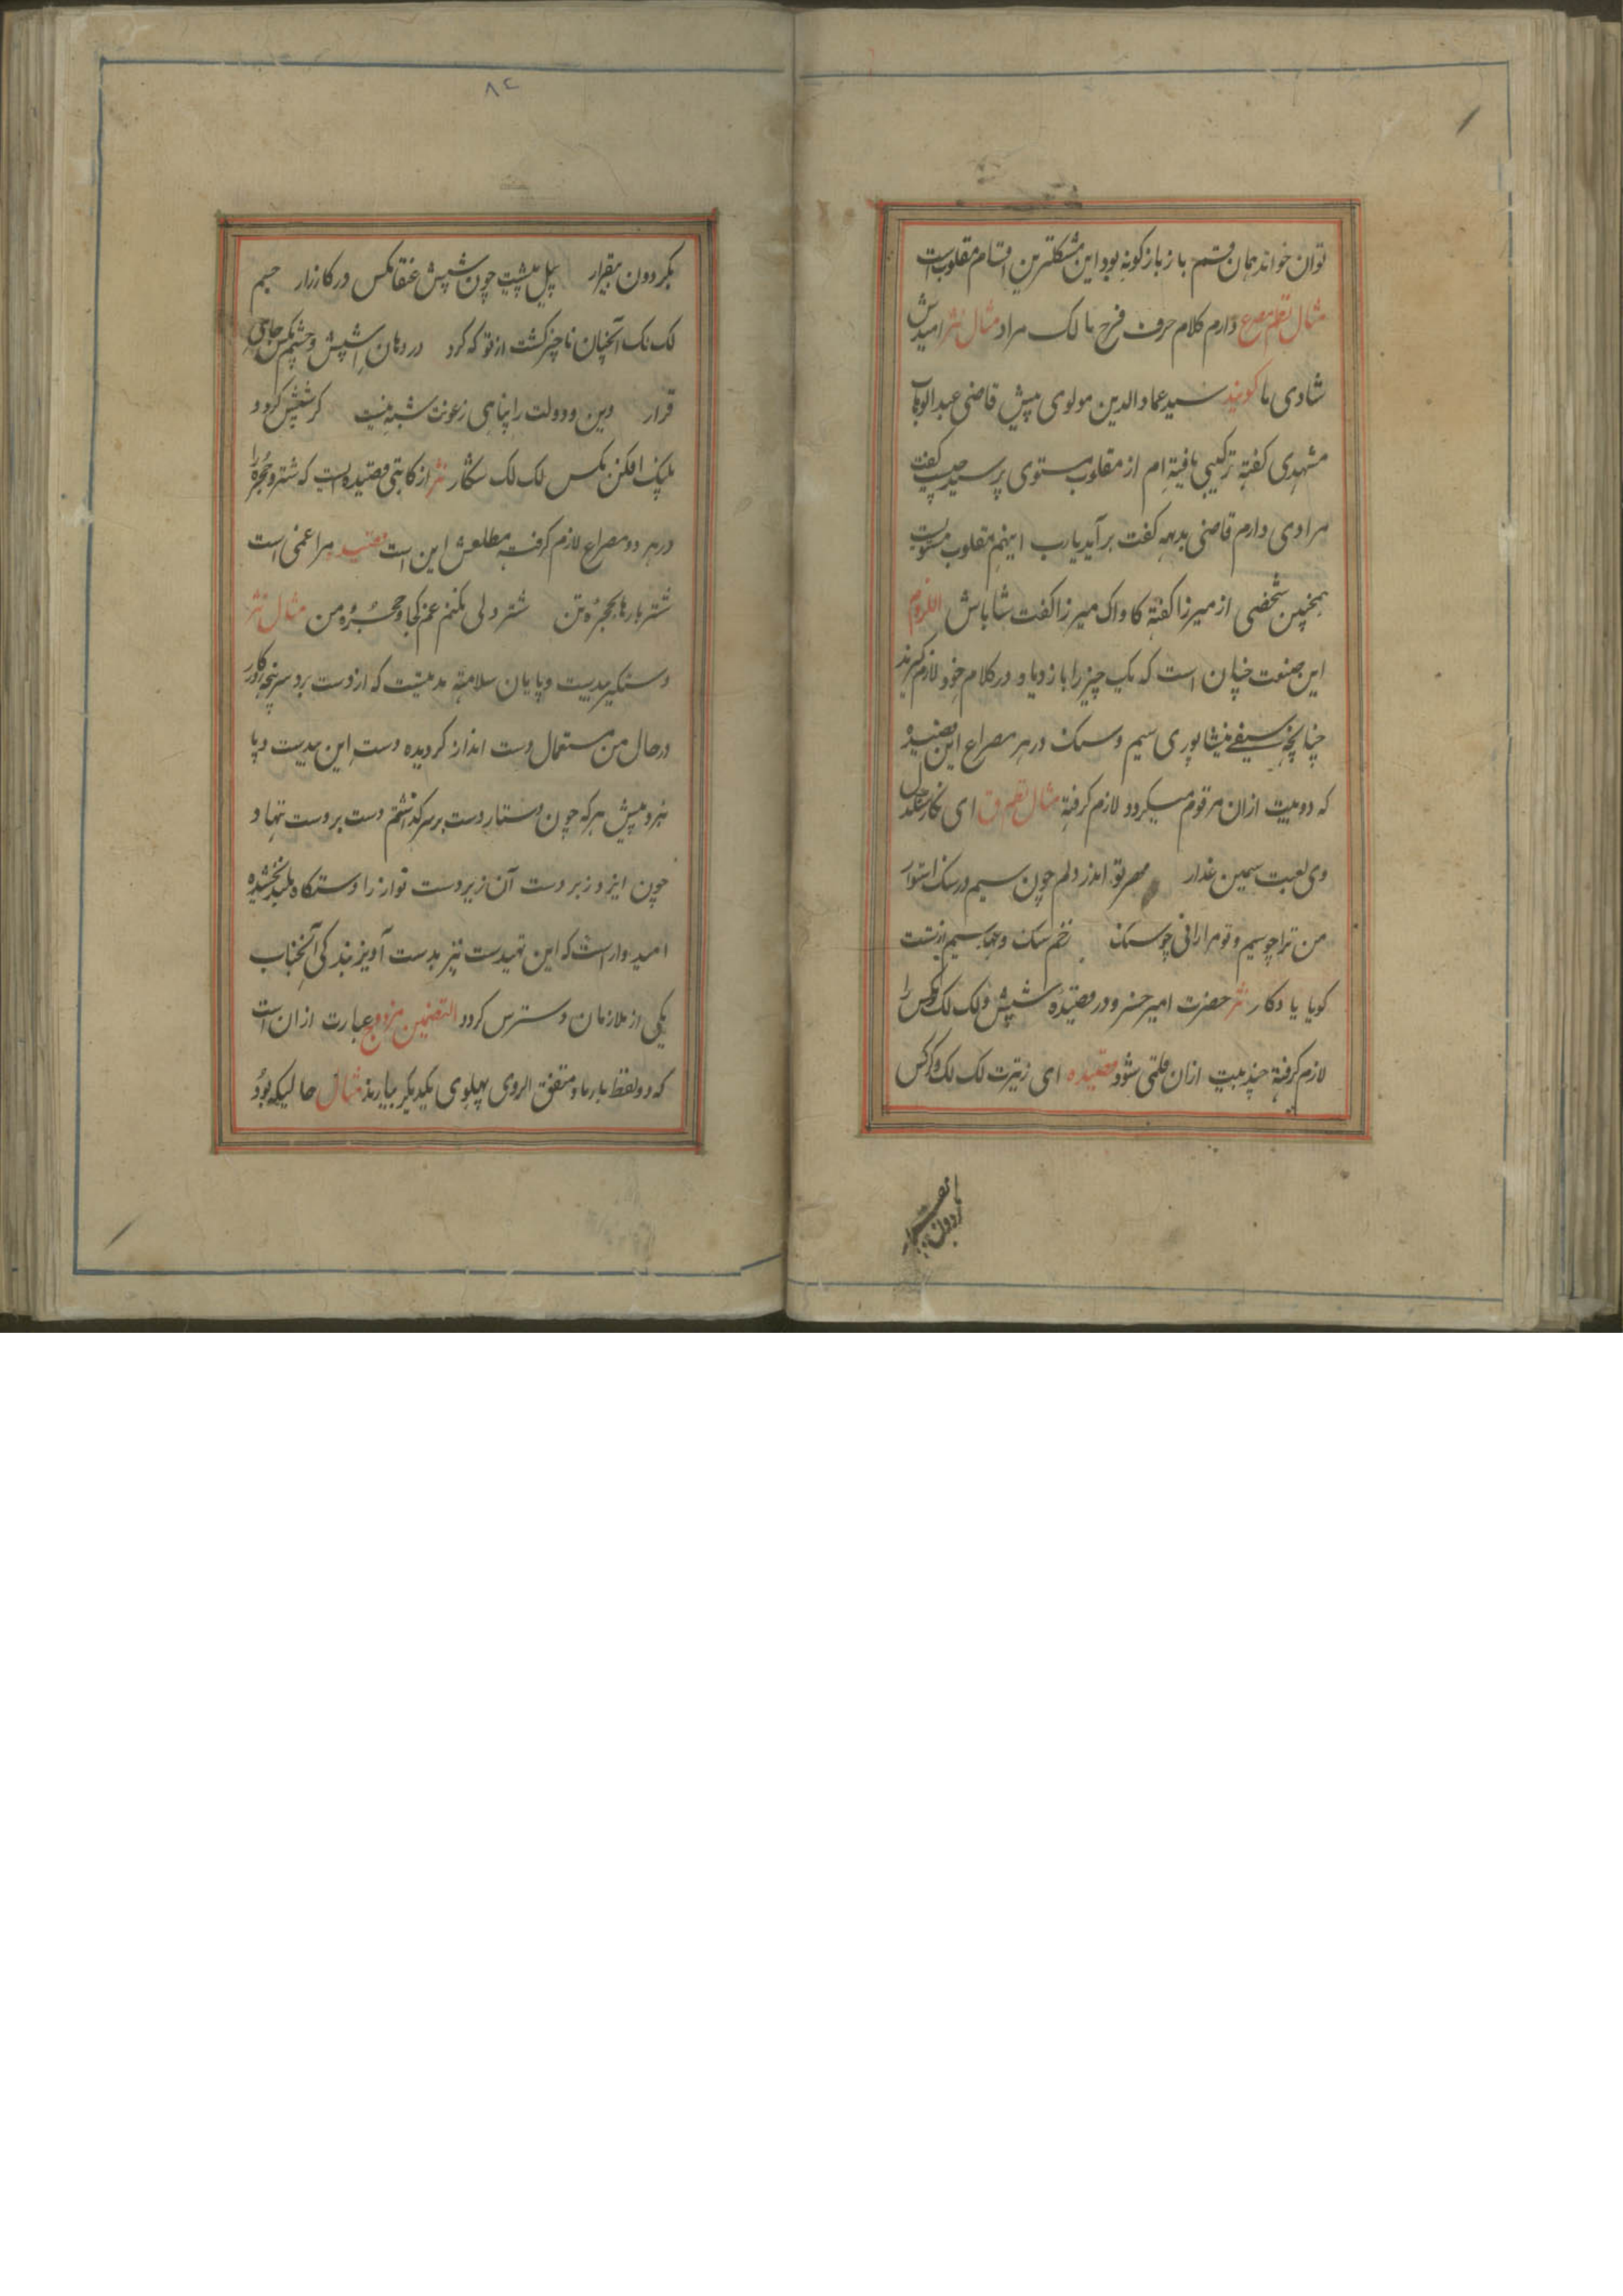 توان خواند همان قسم باز باز کونه بود این مشکلترین اقسام مقلوب است
مثال نظم مصرع دارم کلام حرف فرح مالک مراد مثال نثر امیدش
شادی ما کویند سید عماد الدین مولوی پیش قاضی عبدالوهاب
مشهدی کفته ترکیبی یافته ام از مقلوب مستوی پرسید چیست کفت
مرادی دارم قاضی بدیهه کفت برآید یارب اینهم مقلوب مستویست
همچنین شخصی از میرزا کفته کاواک میرزا کفت شاباش اللزوم
این صنعت چنان است که یک چیز را یا زیاده در کلام خود لازم کیرند
چنانچه سیفی نیشاپوری سیم و سنک در هر مصراع این قصیده
که دو بیت ازان مرقوم میکردد لازم کرفته مثال نظم ق ای نکار سنکدل
وی لعبت سیمین عذار مهر تو اندر دلم چون سیم در سنک استوار
من ترا چو سیم و تو مرا رانی چو سنک زخم سنک و چهره سیم از تست
کویا یادکار نثر حضرت امیر خسرو در قصیده شپش و لک لک و مکس را
لازم کرفته چند بیت ازان قلمی شود قصیده ای ز تیرت لک لک و کرکس
بکردون بیقرار پیل پیشت چون شپش عنقا مکس در کارزار جسم
لک لک آنچنان ناچیز کشت از تو که کرد در دهان شپش و چشم مکس جای
قرار دین و دولت را پناهی زعونت شبه نیست کر شپش کردد
پلنک افکن مکس لک لک شکار نثر از کاتبی قصیده ایست که شتر و حجره را
در هر دو مصراع لازم کرفت مطلعش این است قصیده مرا غمی است
شتر بارها بحجره تن شتر دلی نکنم غم کجا و حجره من مثال نثر
دستکیر بیدست و پایان سلامت مدتیست که از دست برد سر پنجه روزکار
در حال من مستمال دست انداز کردیده دست این بیدست و پا
نیرو پیش هرکه چون دستار دست بر سر کذاشتم دست بر دست نهاد
چون ایزد زبردست آن زیردست نواز را دستکاه بلند بخشیده
امیدوار است که این تهیدست نیز بدست آویز بندکی آنجناب
یکی از ملازمان دسترس کردد التضمین مزدوج عبارت ازان است
که دو لفظ یا زیاده متفق الروی پهلوی یکدیکر بیارند مثال حالیکه بود